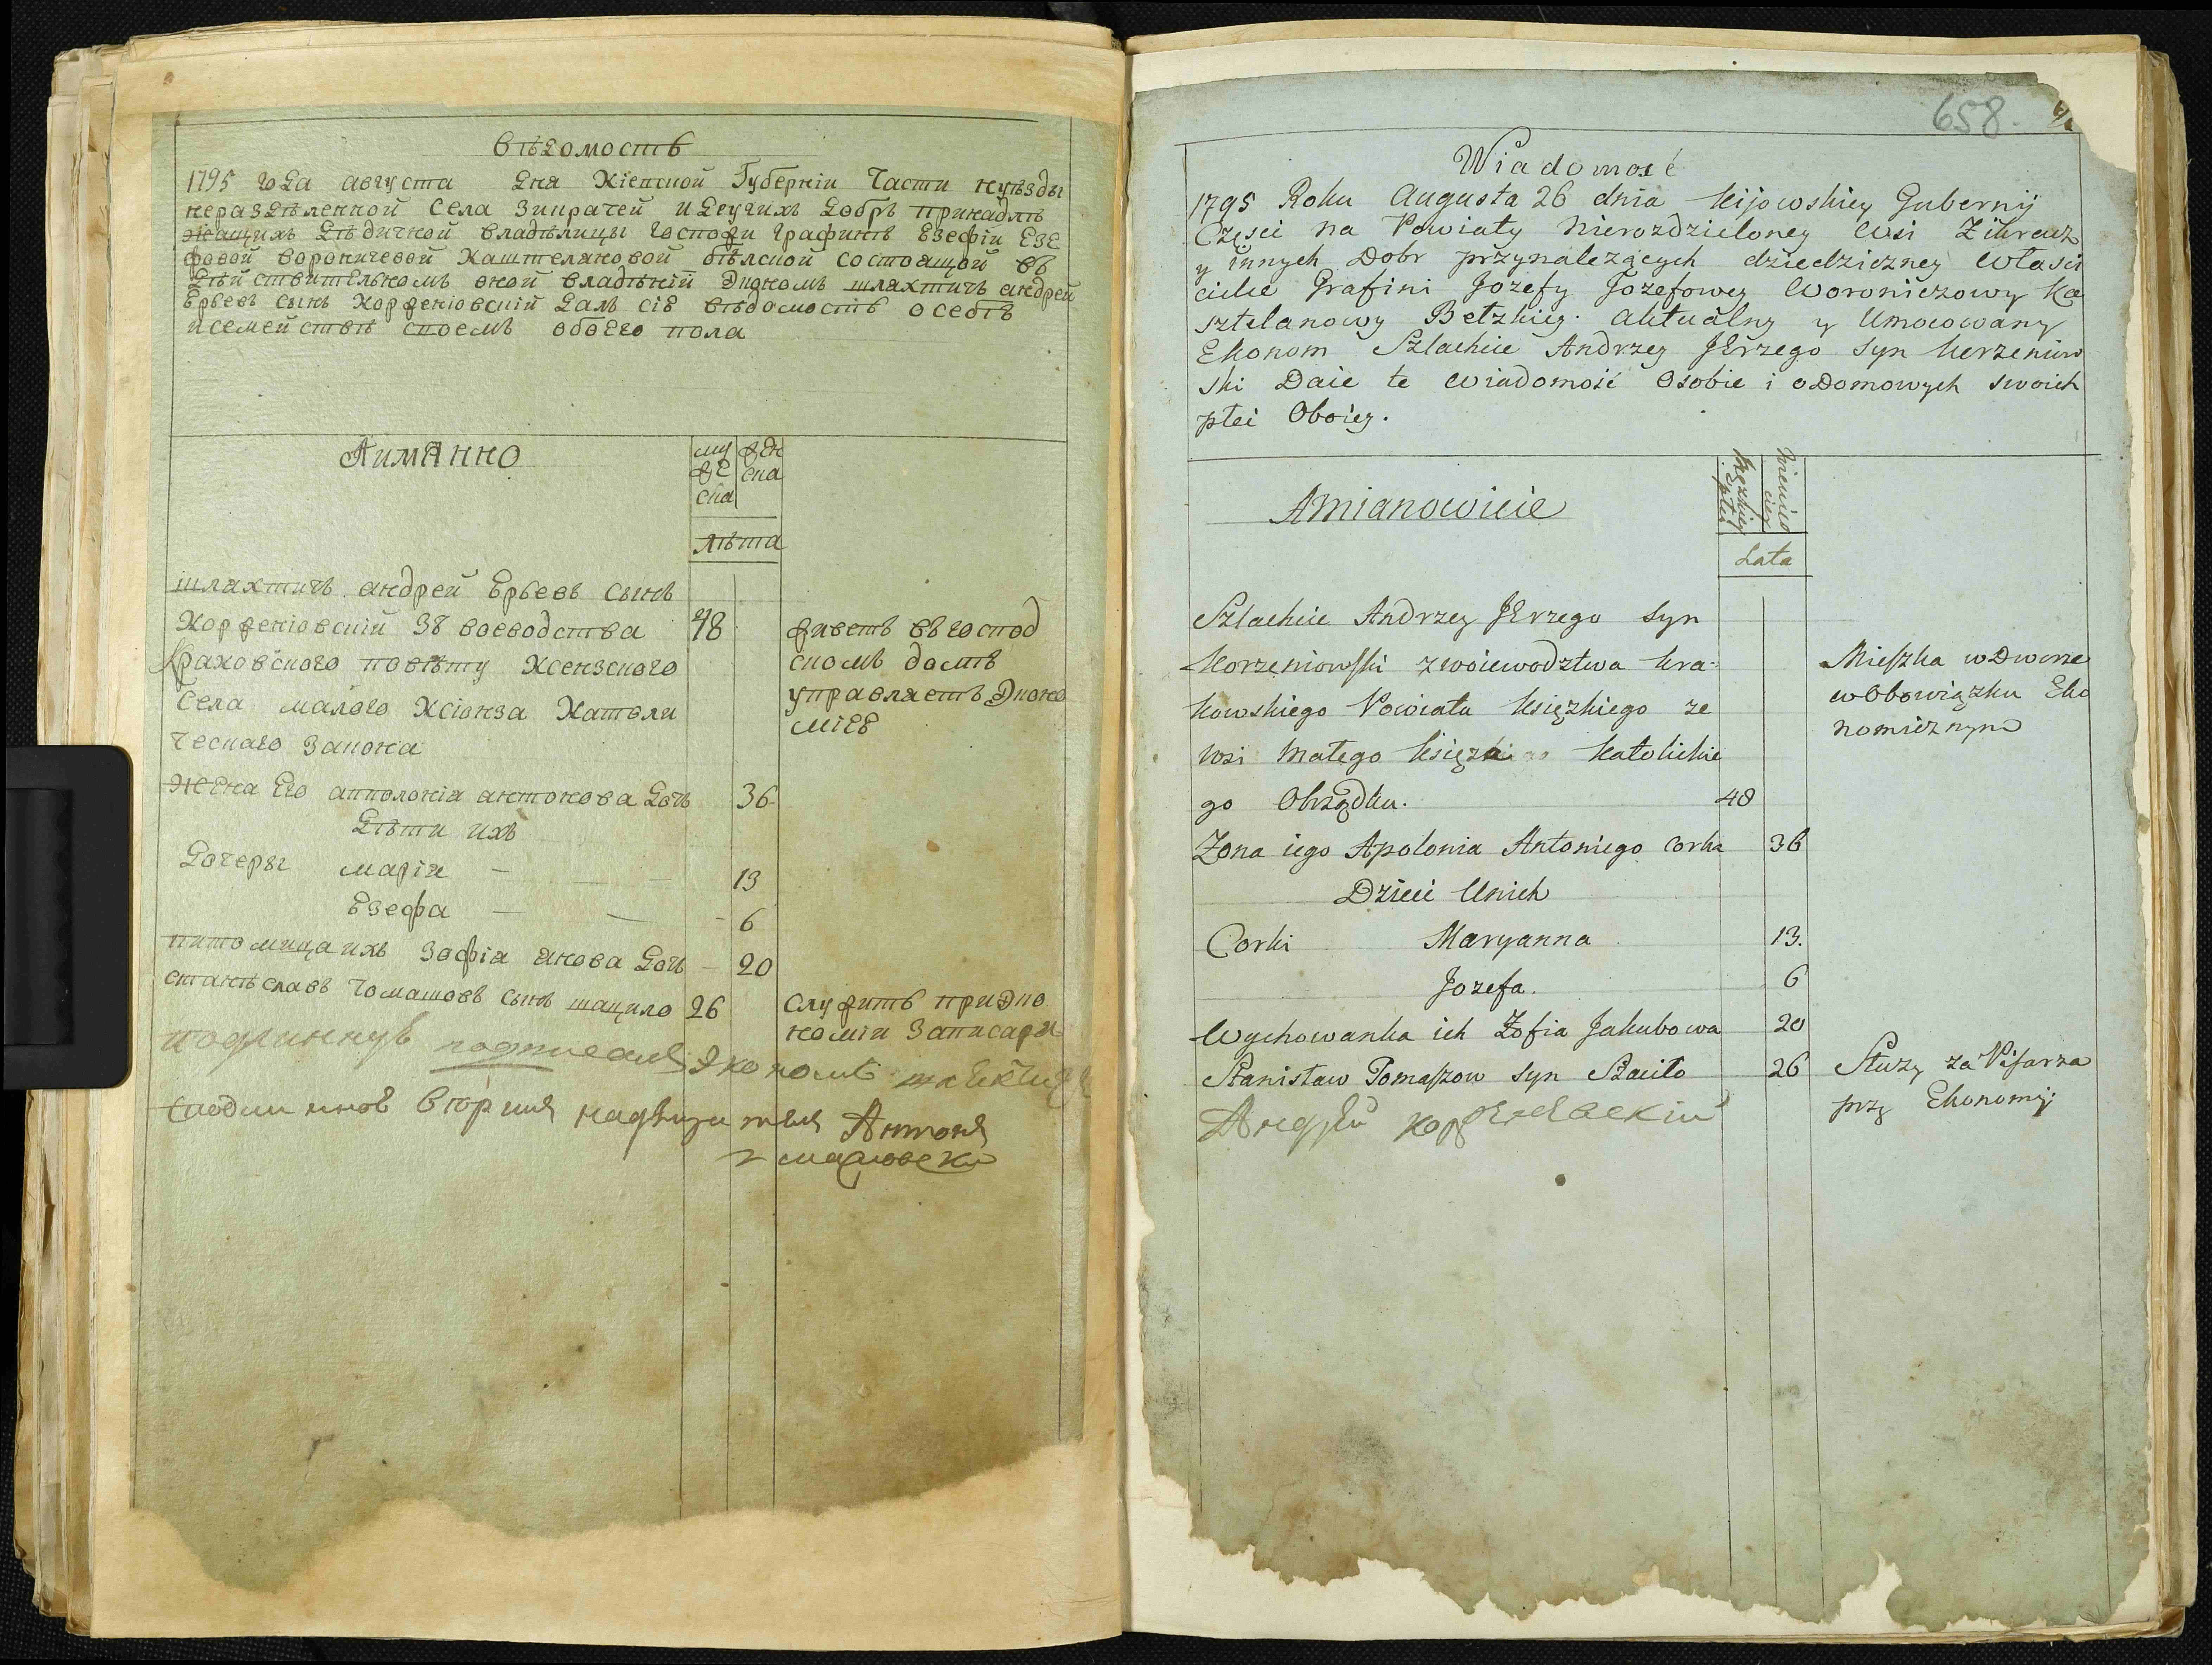 вѣдомость
1795 года августа дня Кіевской Губерніи Части куѣзды
неразделенной Села Зикрачей и другихъ добръ принадлѣ
жащихъ дѣдичной владѣлицы Госпожи Графинѣ Езефіи Езе
фовой Вороничевой Каштеляновой бѣлской состоящой въ
дѣйствительномъ оной владѣніи Экономъ шляхтичъ андрей
Ерьевъ сынъ Корженіовскій далъ сіе вѣдомость о себѣ
и семействѣ своемъ обоего пола
Аимянно
му же ска
жен ска
лѣта
шляхтичъ андрей Ерьевъ сынъ
Корженіовскій зъ воеводства 48 живетъ въ господ
Краковского повѣту Ксензского скомъ домѣ
Села малого Ксіонза Католи управляетъ Эконо
ческаго закона міее
жена его апполонія антонова дочь 36
дѣти ихъ
дочеры марія 13
Езефа 6
питомица ихъ Зофія якова дочь 20
станѣславъ томашовъ сынъ шацило 26 служитъ при Эко
номіи за писаря
подлинную подписалъ Экономъ
Антонъ
658.
Wiadomosć
1795 Roku Augusta 26 dnia Kijowskiey Gubernij
Częsci na Powiaty Nierozdzieloney Wsi Zikracz
y innych Dobr przynalezących dziedziczney Własci
cielce Grafini Jozefy Jozefowey Woroniczowy Ka
sztelanowy Bełzkiey. aktualny y Umocowany
Ekonom Szlachcic Andrzey JErzego syn Korzeniow
ski Daie te wiadomość Osobie i o Domowych swoich
płci Oboiey.
Amianowicie
Męzkiey płci
Niewieściey
Lata
Szlachcic Andrzey JErzego syn
Korzęniowski z woiewodztwa Kra- Mieszka w Dworze
kowskiego Powiatu Księzkiego ze w Obowiązku Eko
wsi Małego Księza Katolickie nomicznym
go Obrządku. 48
Zona iego Apolonia Antoniego Corka 36
Dzieci Unich
Corki Maryanna 13.
Jozefa. 6
Wychowanka ich Zofia Jakubowa 20
Stanisław Tomaszow syn Szaciło 26 Słuzy za Pisarza
przy Ekonomij
Андрѣй Корженевскій